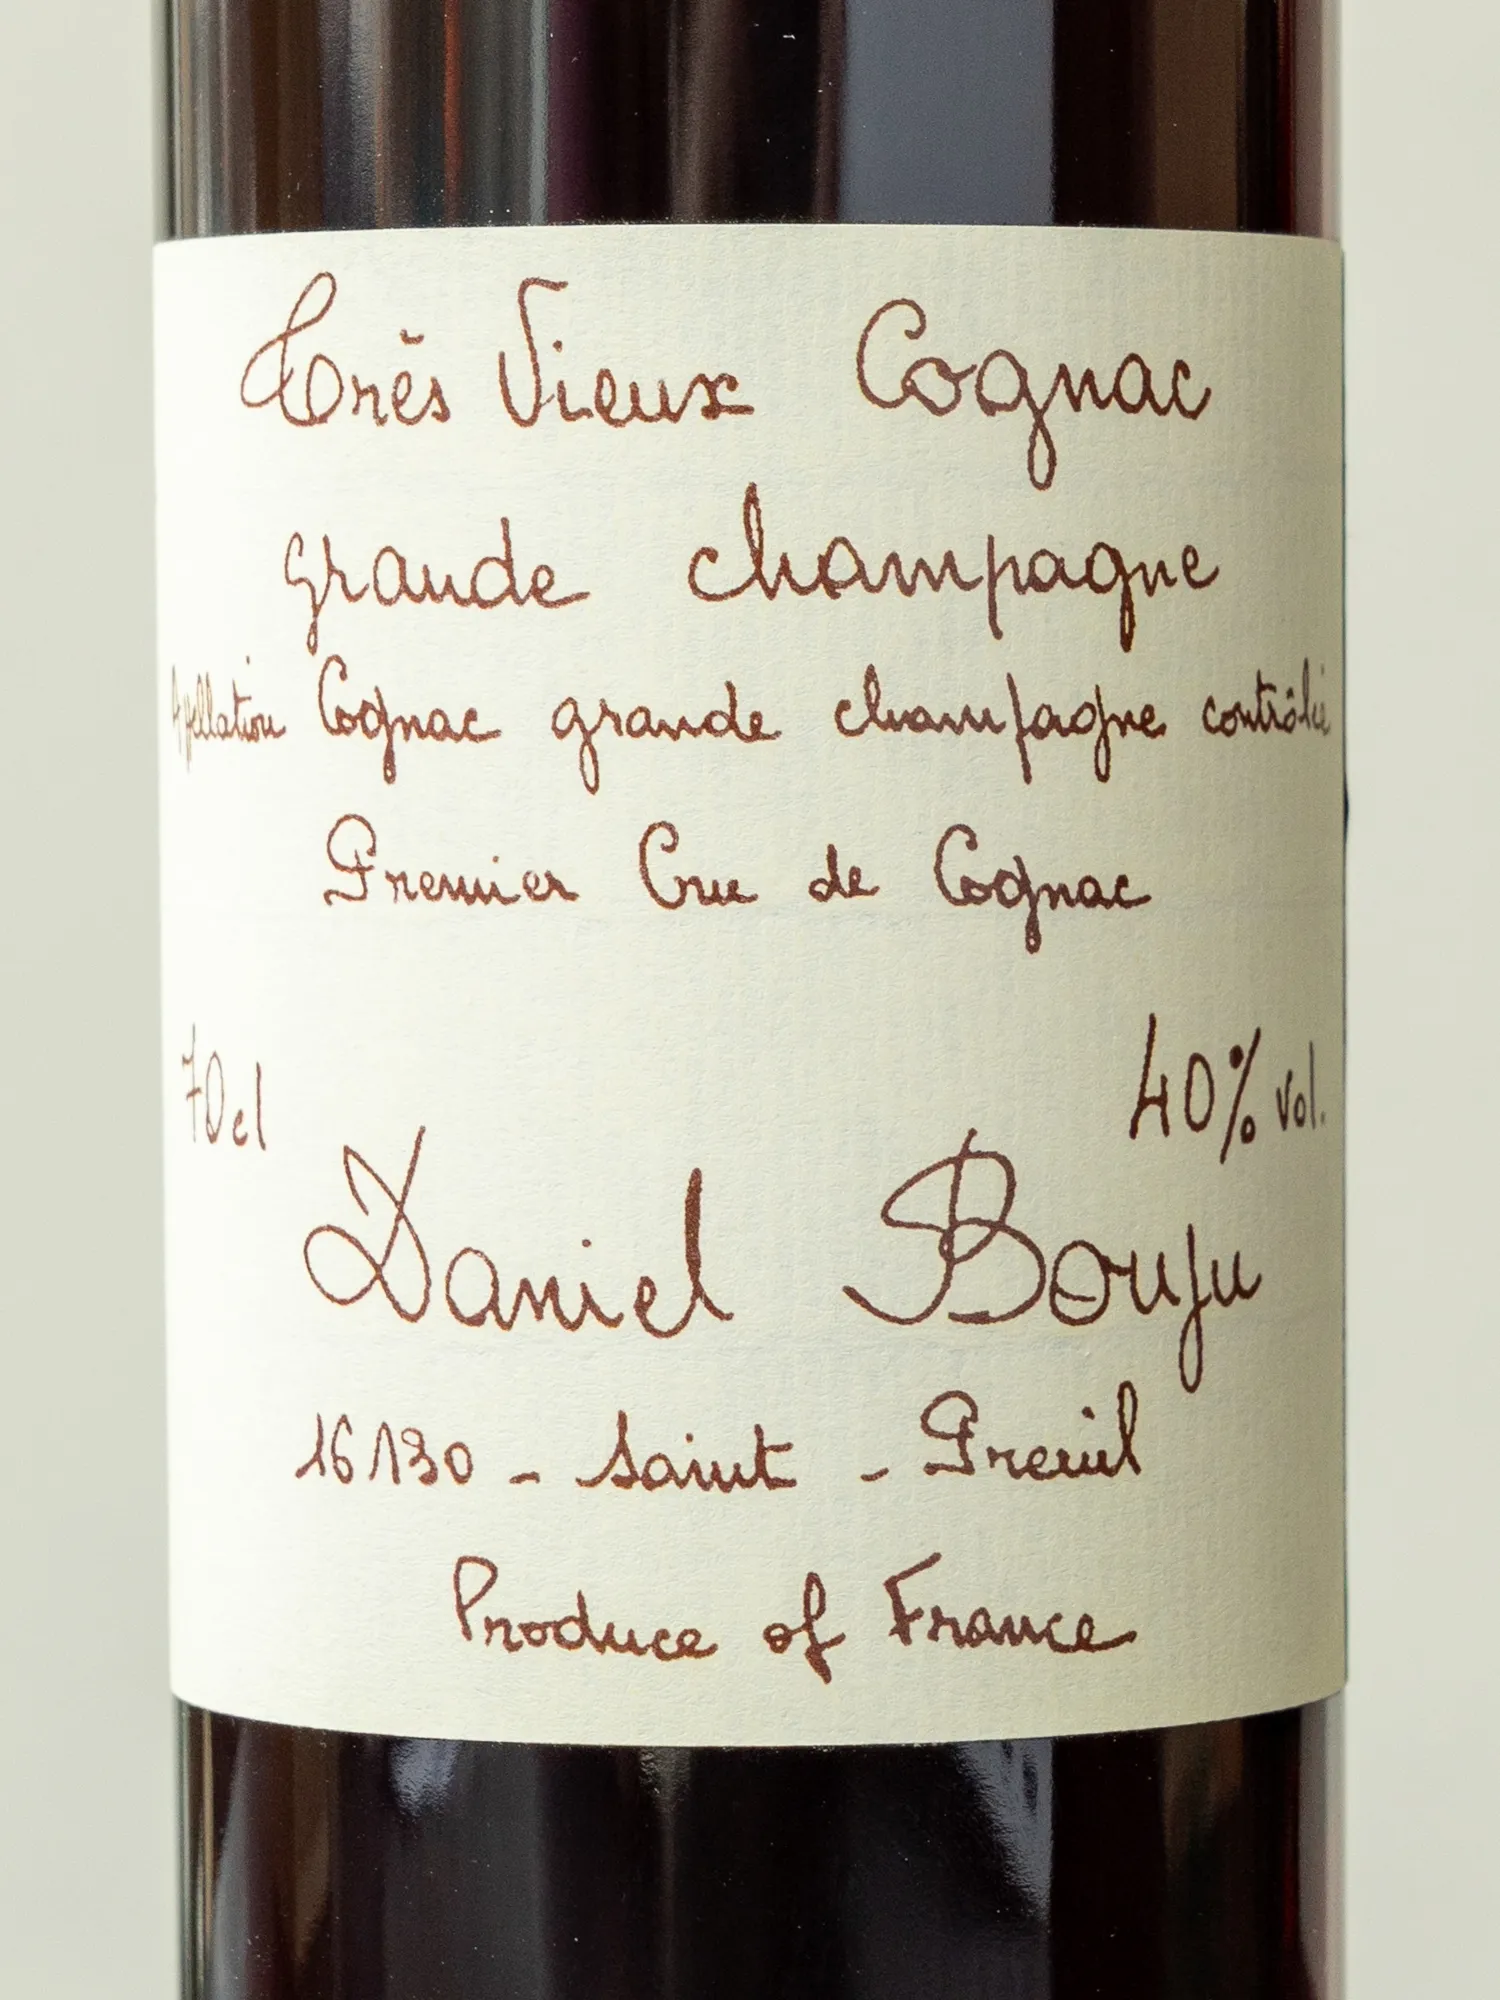 Très Vieux Cognac
grande champagne
Appellation Cognac grande champagne contrôlée
Premier Cru de Cognac
70cl 40% vol.
Daniel Bouju
16130 - Saint - Preuil
Produce of France